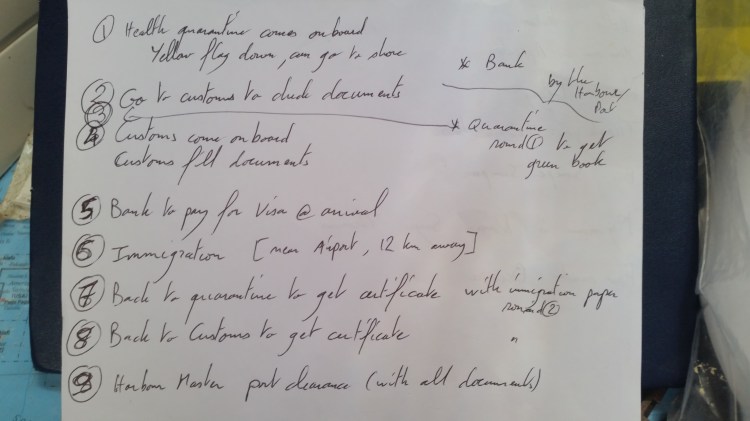 ① Health quarantine comes onboard
Yellow flag down, can go to shore
* Bank
by the
Harbour/
Port
② Go to customs to check documents
③
* Quarantine
round ① to get
green book
④ Customs come onboard
Customs fill documents
⑤ Bank to pay for Visa @ arrival
⑥ Immigration [near Airport, 12 km away]
⑦ Back to quarantine to get certificate with immigration paper
round ②
⑧ Back to Customs to get certificate "
⑨ Harbour Master port clearance (with all documents)